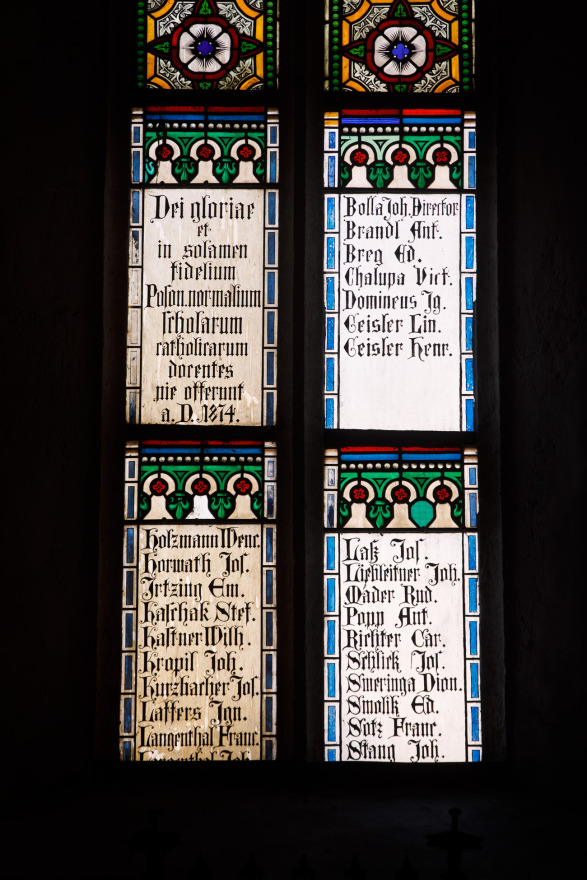 Dei gloriae
et
in solamen
fidelium
Poson. normalium
scholarum
catholicarum
docentes
pie offerunt
a. D. 1874.
Bolla Joh. Director
Brandl Ant.
Breg Ed.
Chalupa Vict.
Domineus Ig.
Geisler Lin.
Geisler Henr.
Holzmann Wenc.
Horwath Jos.
Irtzing Em.
Kaschak Stef.
Kastner Wilh.
Kropil Joh.
Kurzbacher Jos.
Laffers Ign.
Langenthal Franc.
Langenthal Joh.
Laß Jos.
Liebleitner Joh.
Mader Rud.
Popp Ant.
Richter Car.
Schlick Jos.
Smeringa Dion.
Smolik Ed.
Sotz Franc.
Stang Joh.